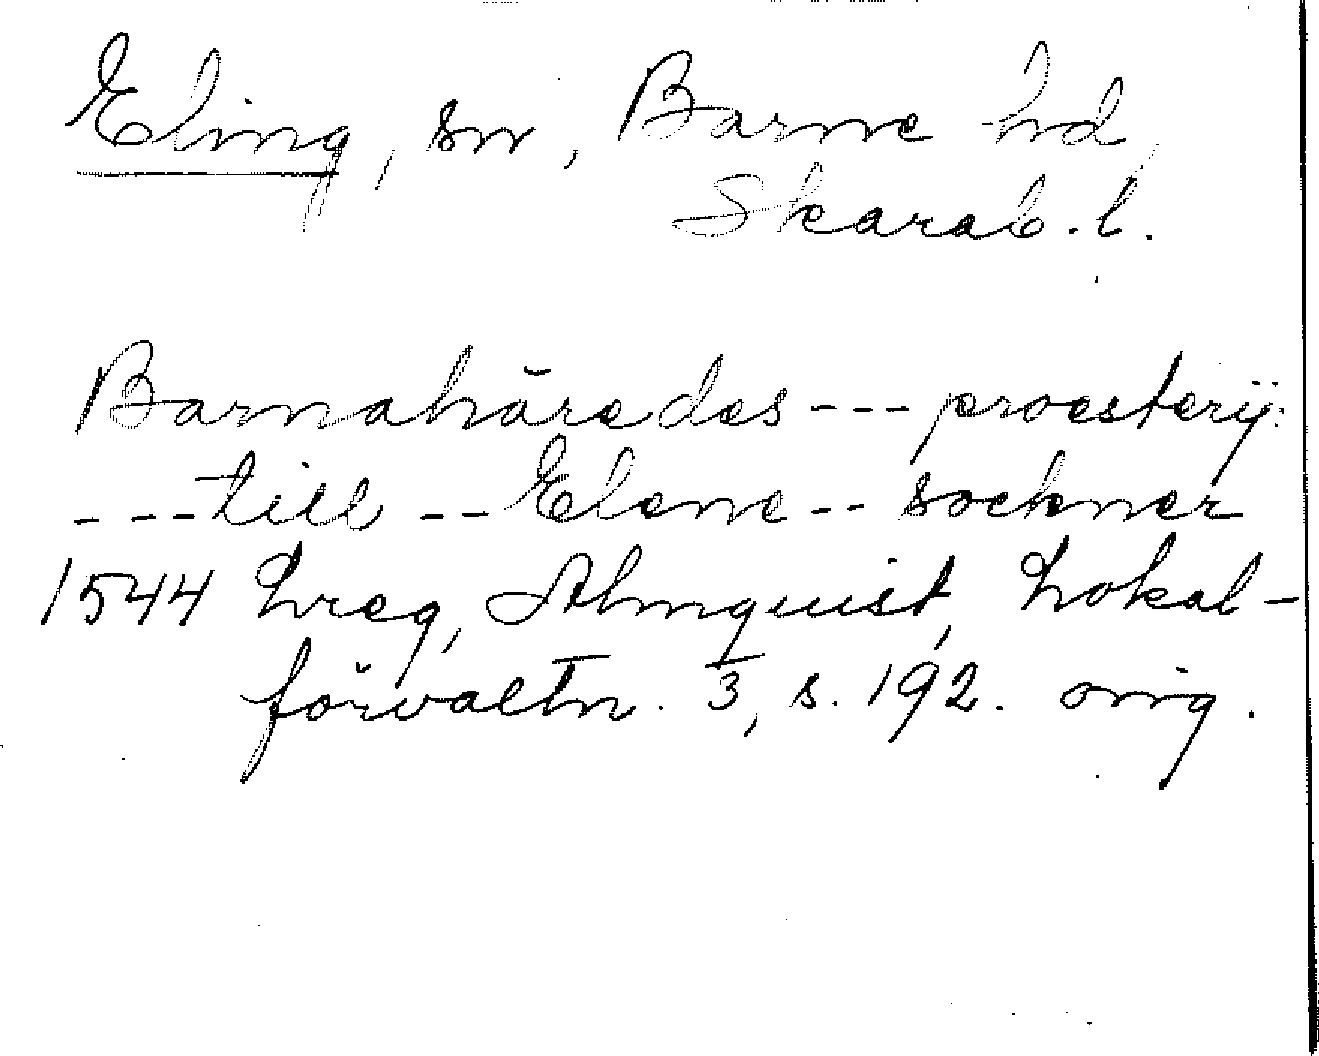 Eling, sn, Barne hd,
Skarab. l.
Barnahäredes --- proesterij:
--- till -- Elene -- sockner
1544 Lreg, Almquist, Lokal-
förvaltn. 3, s. 192. orig.